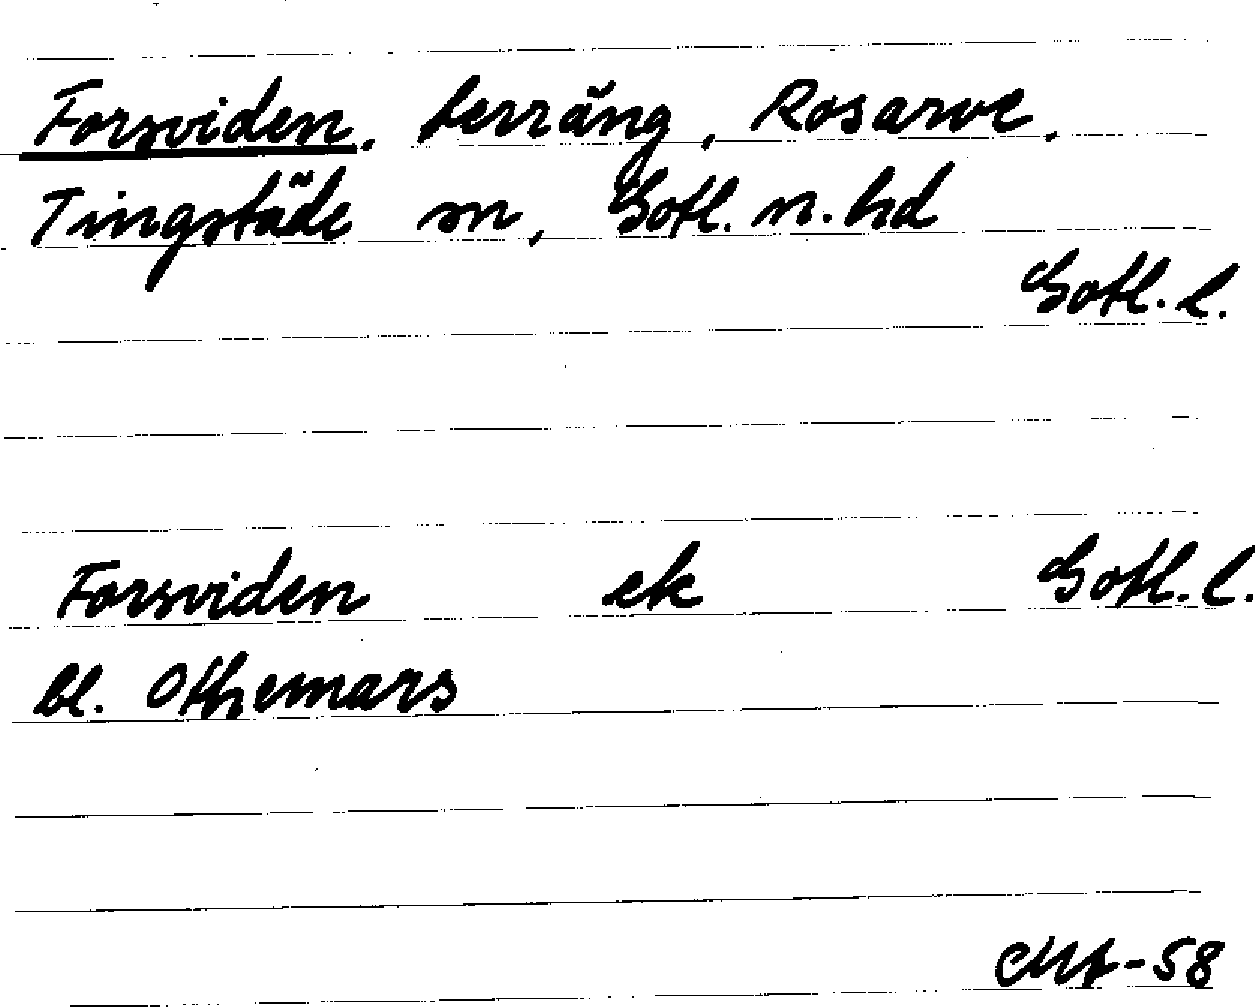 Forsviden, terräng, Rosarve,
Tingstäde sn, Gotl. n. hd
Gotl. l.
Forsviden ek Gotl. l.
bl. Othemars
-58